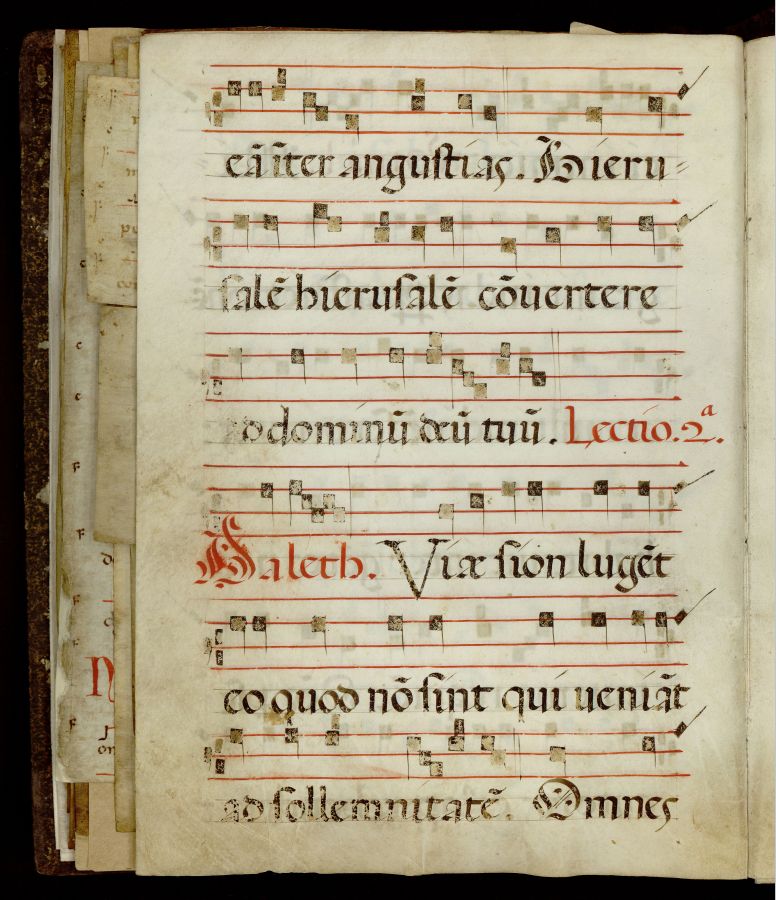 eā īter angustias. Hieru=
salē hierusalē cōuertere
ad dominū deū tuū. Lectio. 2.ª
Daleth. Viæ sion lugēt
eo quod nō sint qui ueniāt
ad sollemnitatē. Omnes